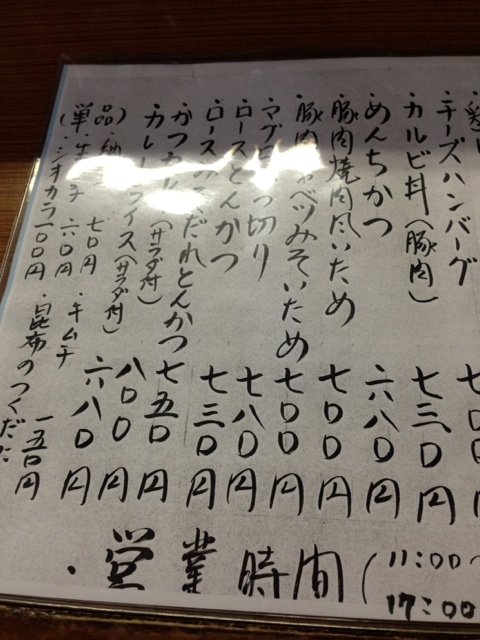 ・チーズハンバーグ 七〇
・カルビ丼(豚肉) 七三〇円
・めんちかつ 六八〇円
・豚肉焼肉風いため 七〇〇円
・豚肉 ベツみそいため 七〇〇円
・マグロ つ切り 七八〇円
・ロースとんかつ 七三〇円
・ロースみそだれとんかつ 七五〇円
・かつカレー(サラダ付) 八〇〇円
・カレーライス(サラダ付) 六八〇円
(単品)・納 七〇円 ・キムチ
・生 子 六〇円
・シオカラ 一〇〇円 ・昆布のつくだに
一五〇円
・営業時間(11:00~
17:00